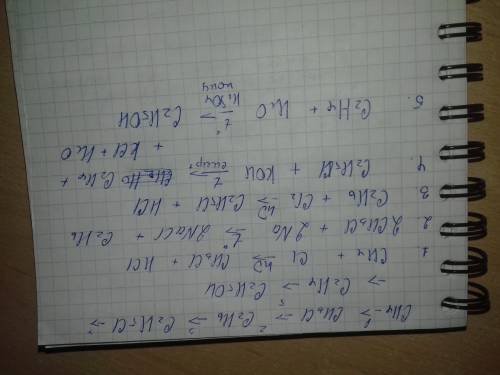 CH4 →¹ CH3Cl →² C2H6 →³ C2H5Cl →⁴
→ C2H4 →⁵ C2H5OH
1. CH4 + Cl →hν CH3Cl + HCl
2. 2CH3Cl + 2Na →t° 2NaCl + C2H6
3. C2H6 + Cl2 →hν C2H5Cl + HCl
4. C2H5Cl + KOH →t спирт C2H4 +
+ KCl + H2O
5. C2H4 + H2O →t° H2SO4 конц C2H5OH